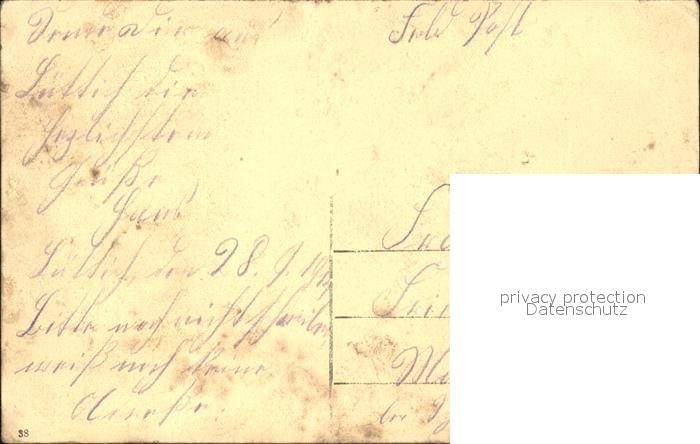 Sende Dir aus
Lüttich die
herzlichsten
Grüße
Hans
Lüttich, den 28. 9. 19
Bitte noch nicht schreiben
weiß noch keine
Adresse.
38
Feld Post
privacy protection
Datenschutz